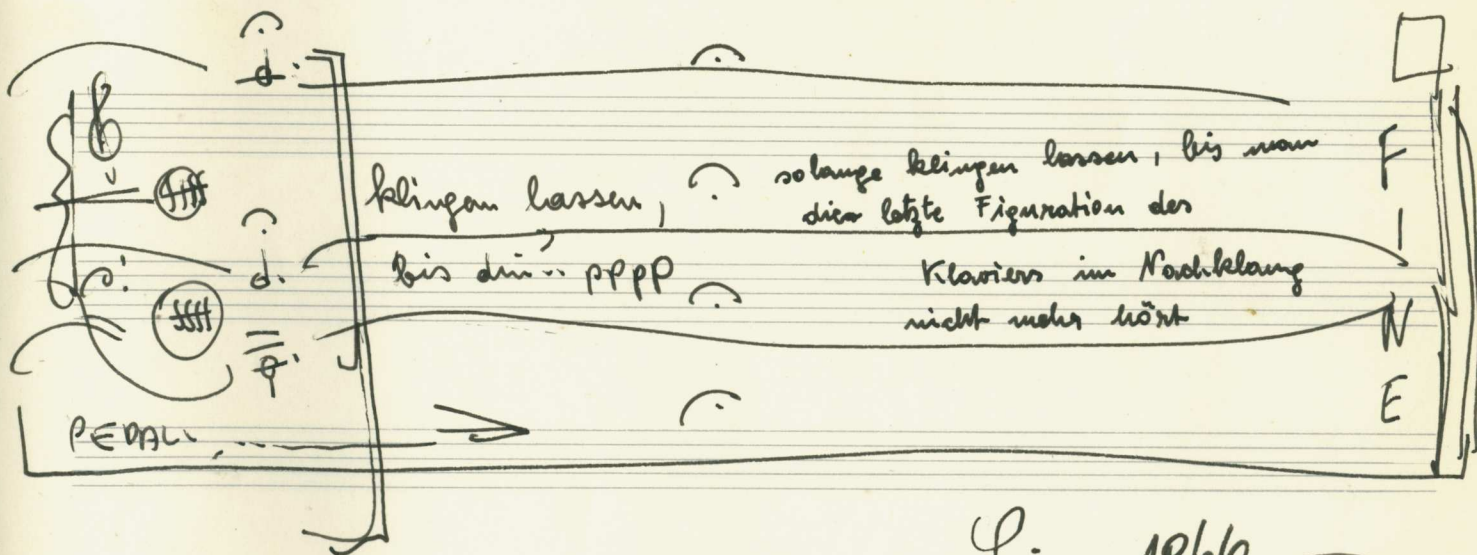 ffff
klingen lassen,
bis dim.. pppp
ffff
PEDAL
solange klingen lassen, bis man
die letzte Figuration des
Klaviers im Nachklang
nicht mehr hört
FINE